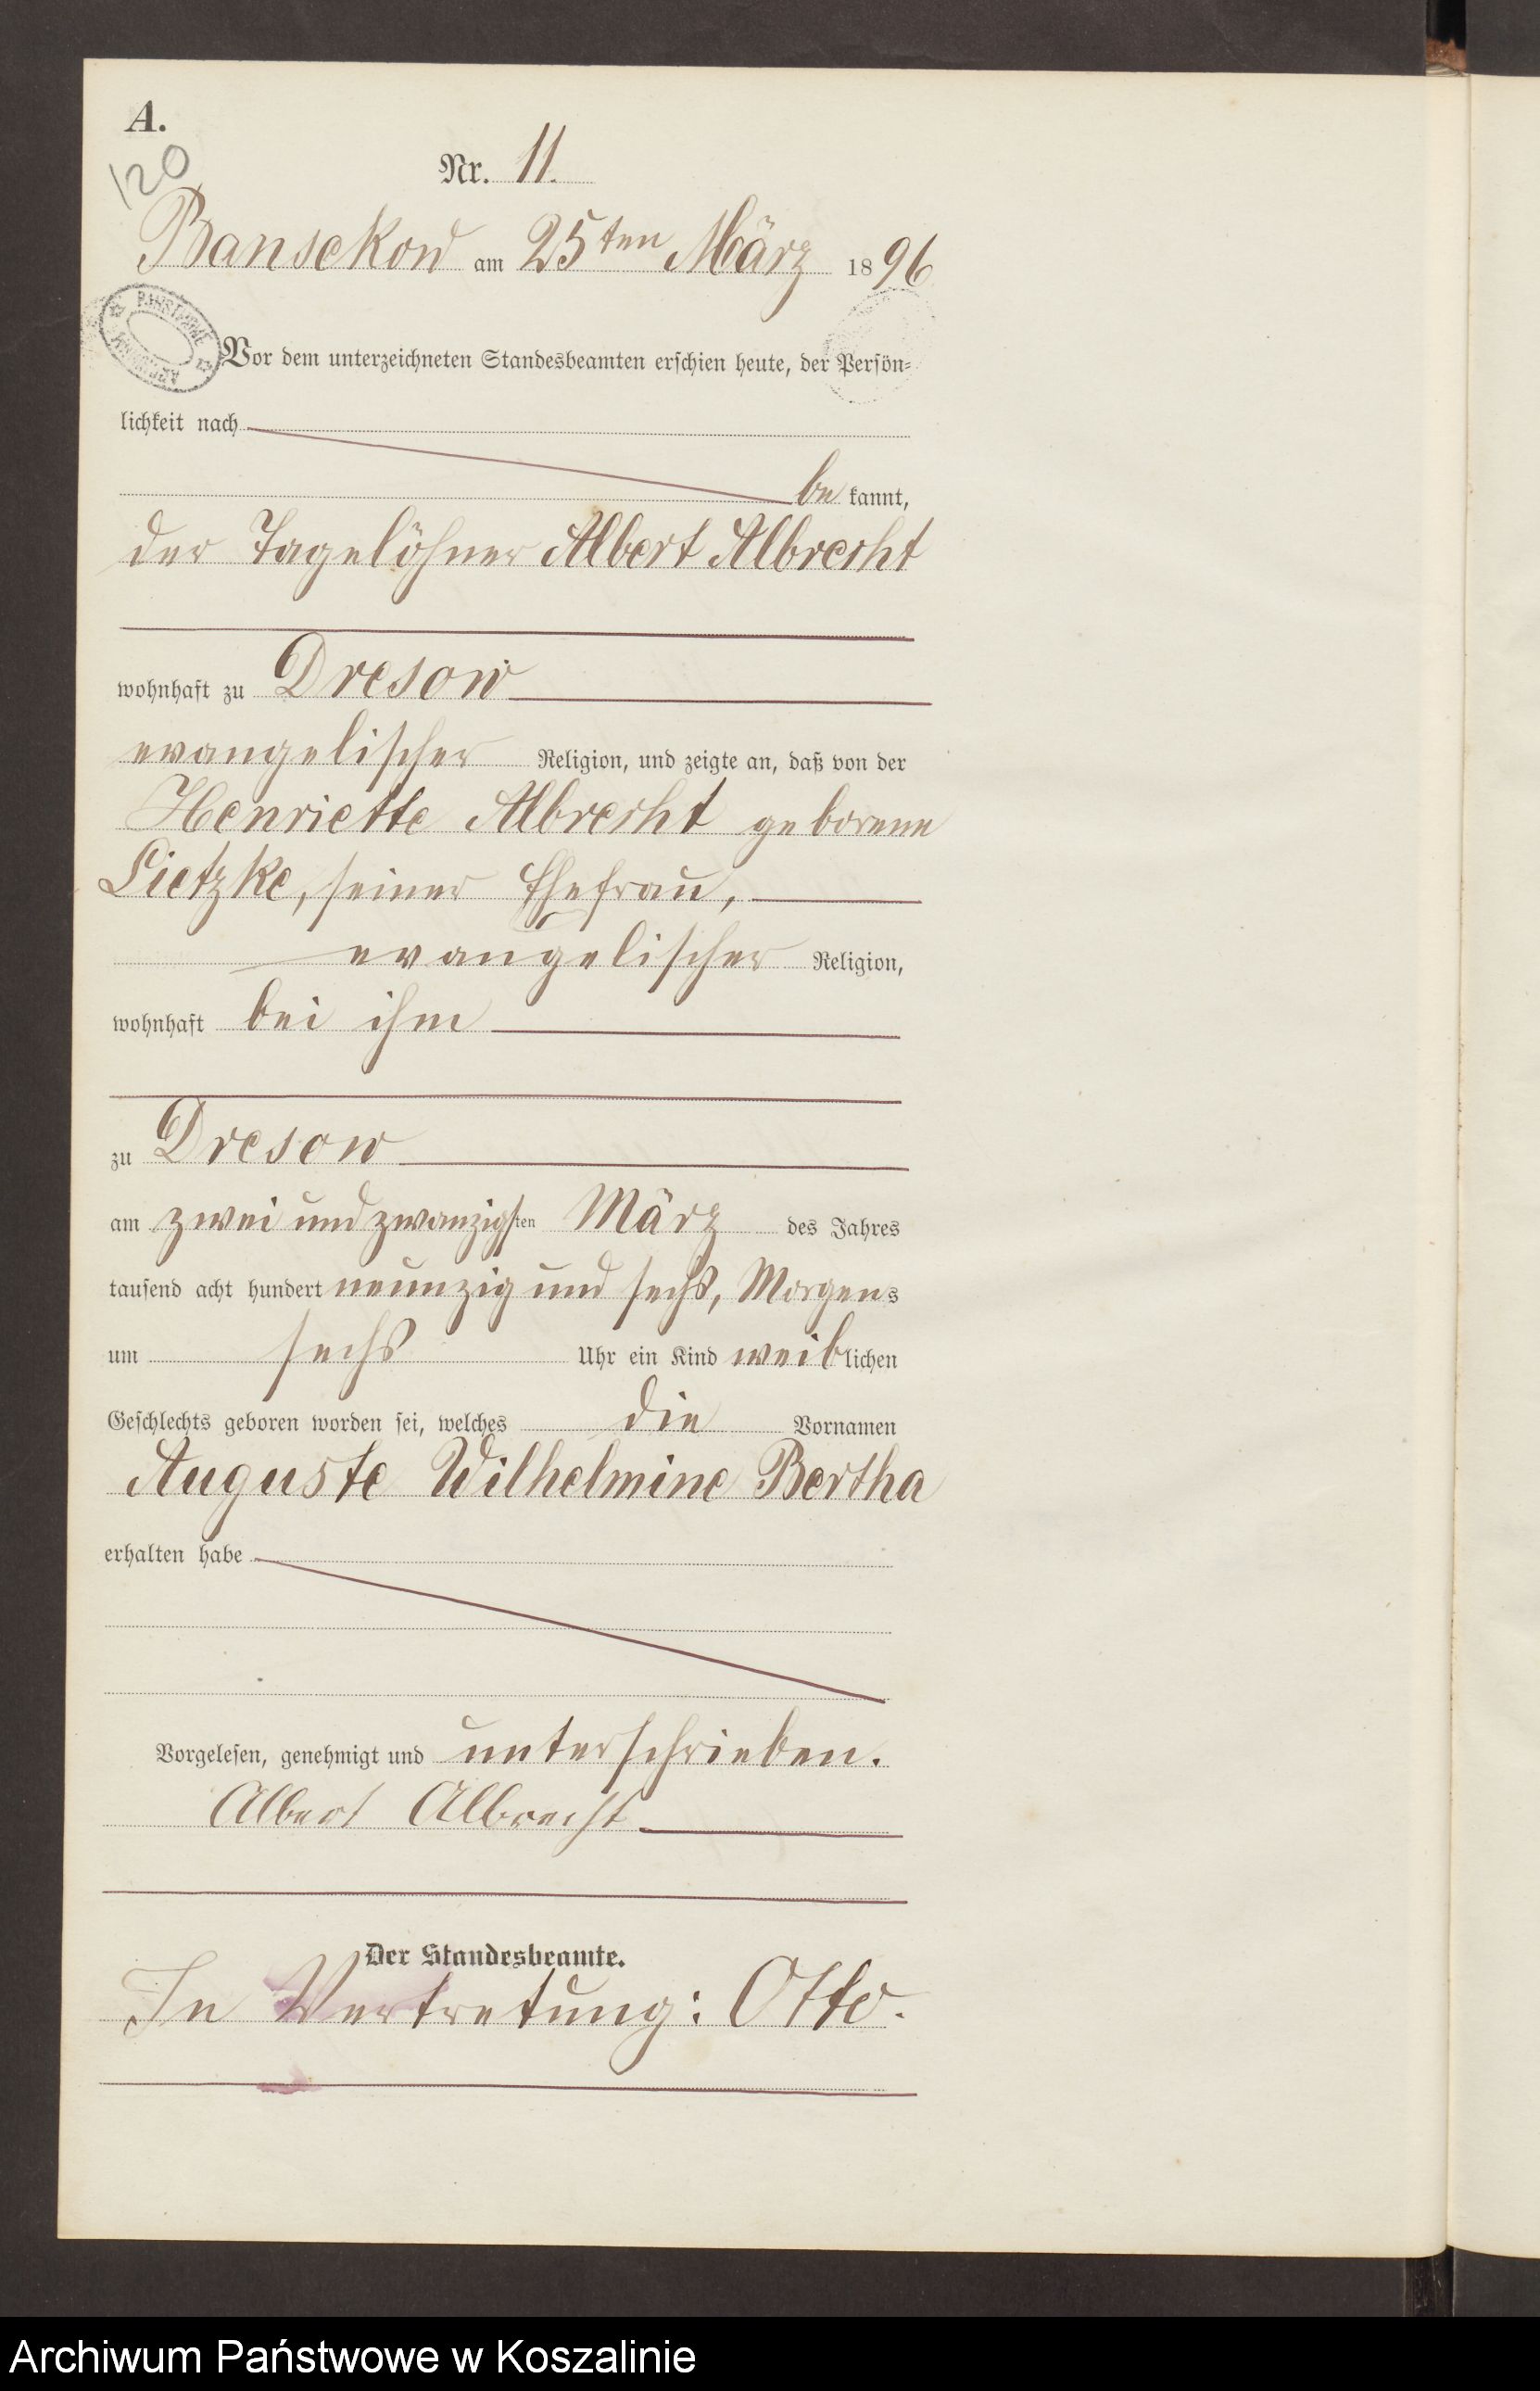 A.
120
Nr. 11.
Bansekow am 25ten März 1896
PAŃSTWOWE ARCHIWUM
Vor dem unterzeichneten Standesbeamten erschien heute, der Persön-
lichkeit nach
be kannt,
der Tagelöhner Albert Albrecht
wohnhaft zu Dresow
evangelischer Religion, und zeigte an, daß von der
Henriette Albrecht geborene
Lietzke, seiner Ehefrau,
evangelischer Religion,
wohnhaft bei ihm
zu Dresow
am zwei und zwanzigsten März des Jahres
tausend acht hundert neunzig und sechs, Morgens
um sechs Uhr ein Kind weiblichen
Geschlechts geboren worden sei, welches die Vornamen
Auguste Wilhelmine Bertha
erhalten habe
Vorgelesen, genehmigt und unterschrieben.
Albert Albrecht
Der Standesbeamte.
In Vertretung: Otto.
Archiwum Państwowe w Koszalinie